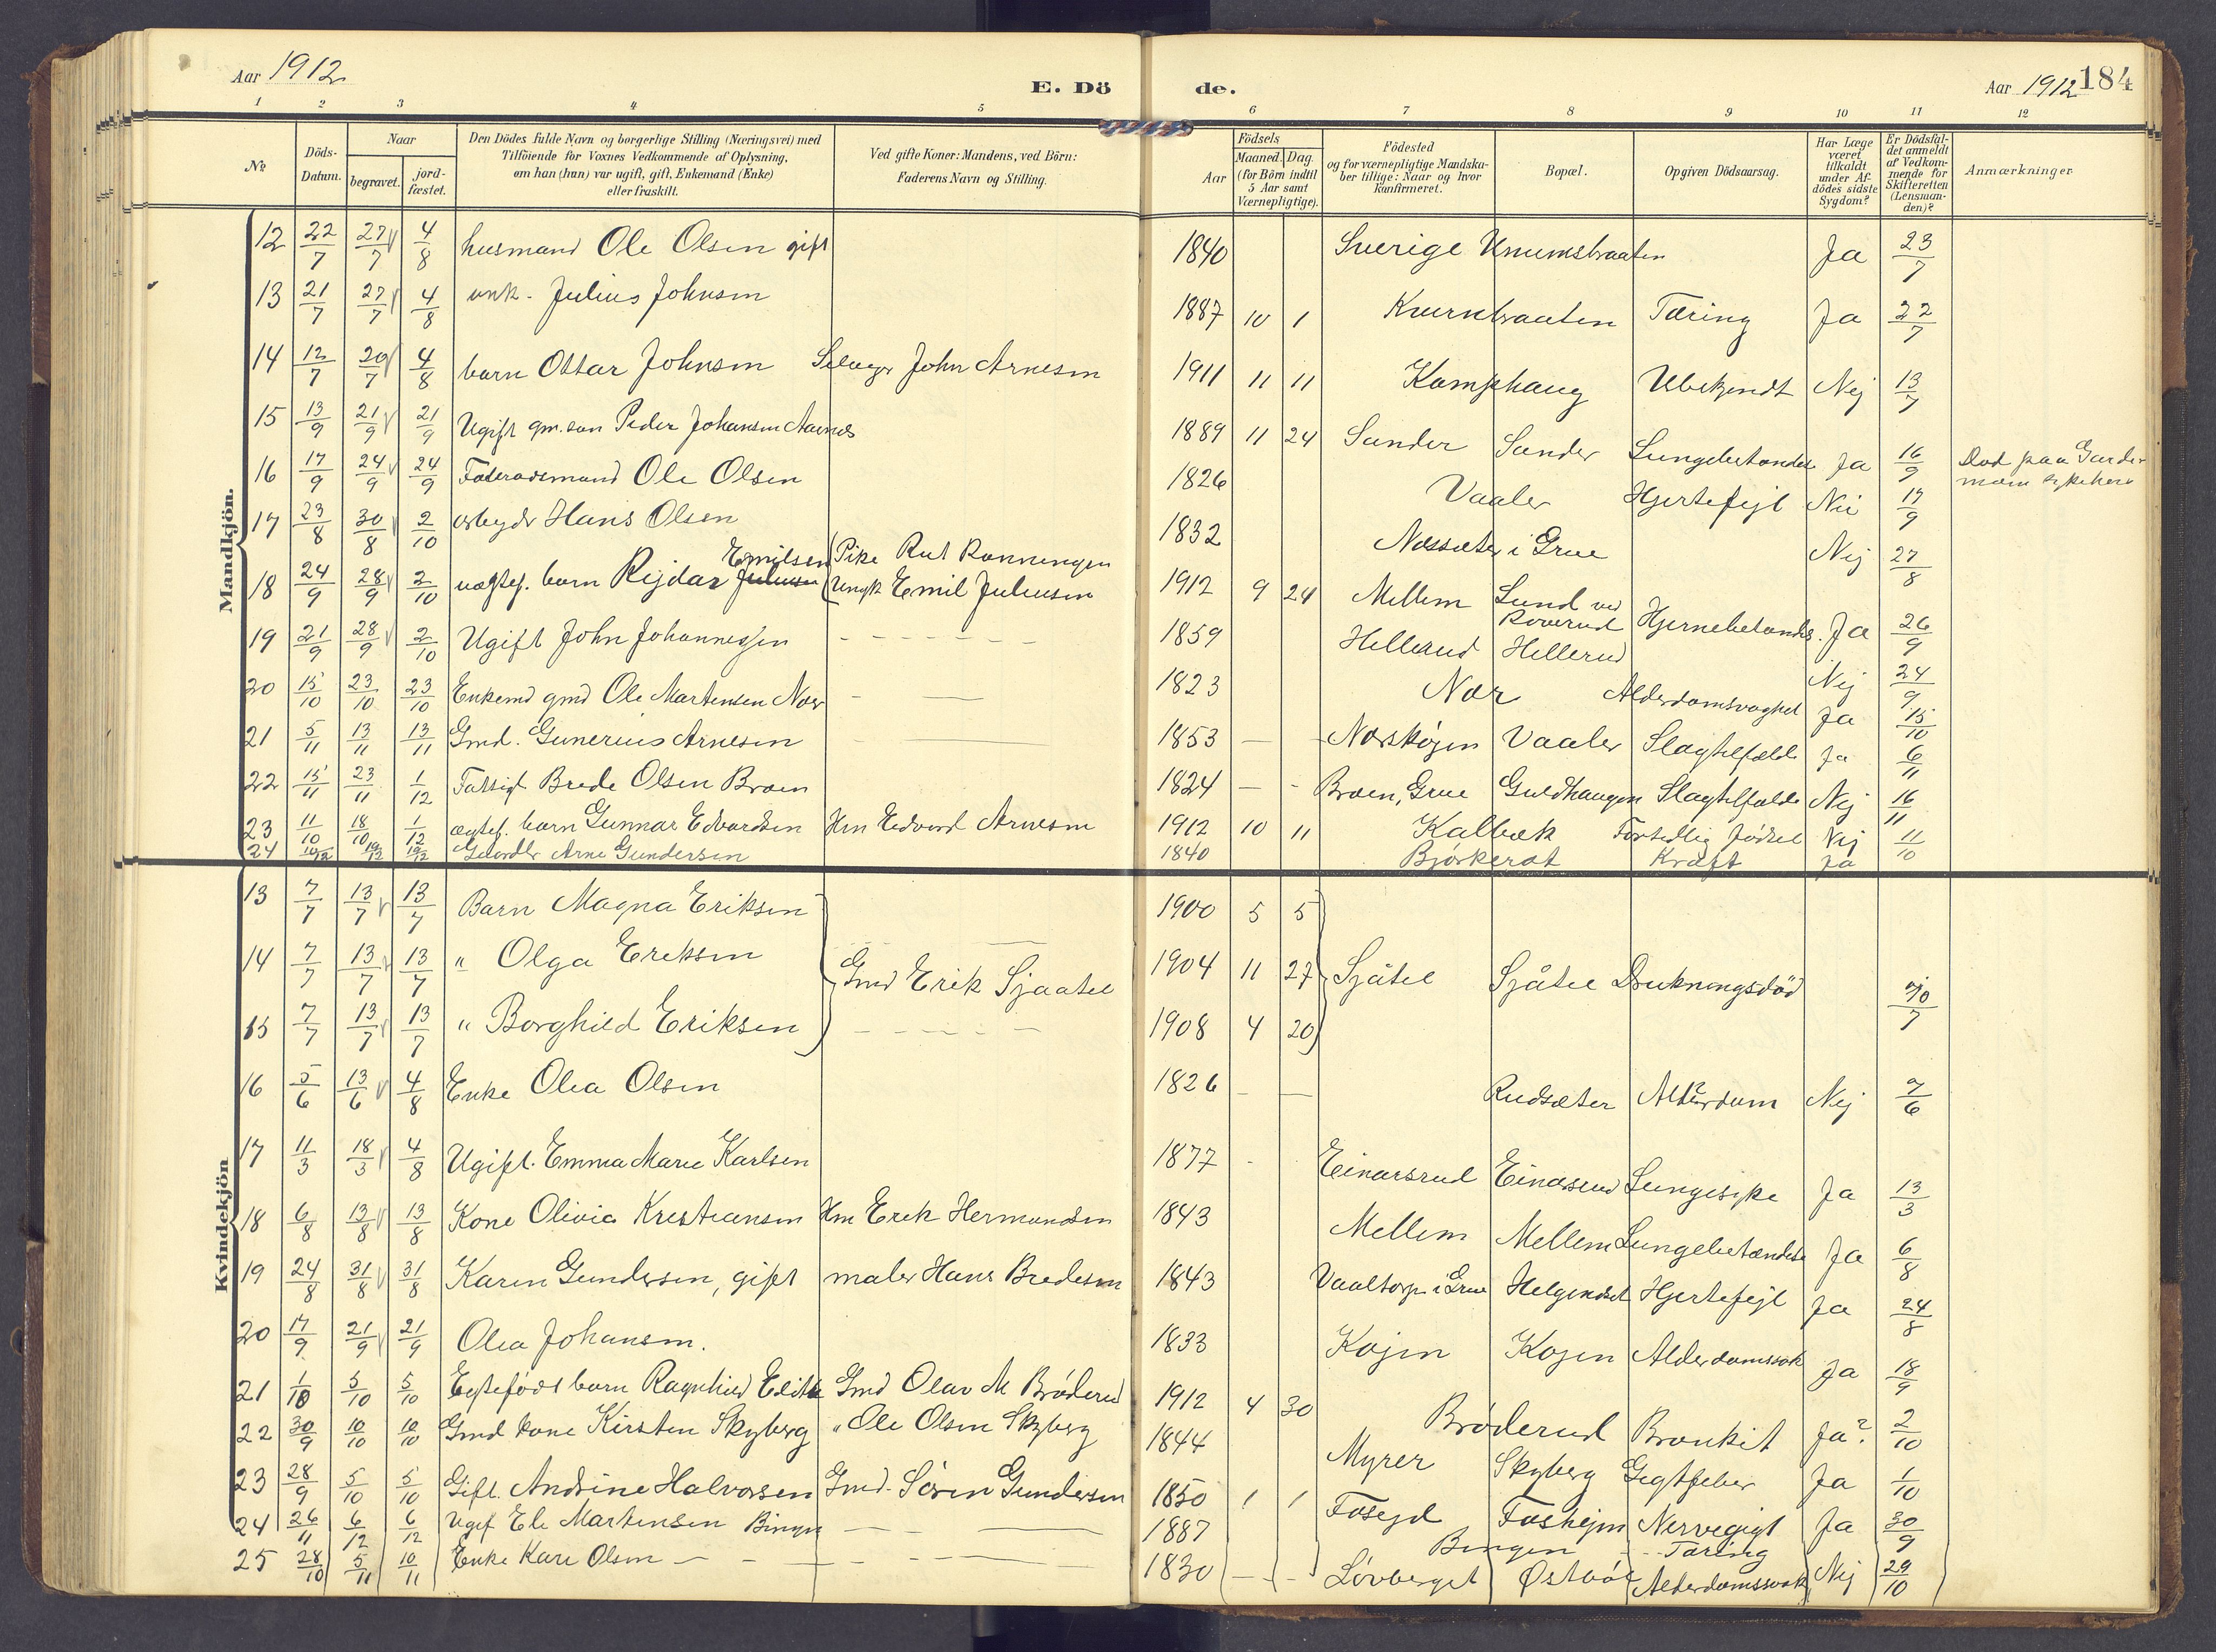 Aar 1912
E. Dö de.
Aar 1912 184
1 2 3 4 5 6 7 8 9 10 11 12
№
Döds-Datum.
Naar
begravet.
jord-fæstet.
Den Dödes fulde Navn og borgerlige Stilling (Næringsvei) med
Tilföiende for Voxnes Vedkommende af Oplysning,
om han (hun) var ugift, gift, Enkemand (Enke)
eller fraskilt.
Ved gifte Koner: Mandens, ved Börn:
Faderens Navn og Stilling.
Födsels
Aar
Maaned. Dag.
(for Börn indtil
5 Aar samt
Værnepligtige).
Födested
og for værnepligtige Mandska-
ber tillige: Naar og hvor
Konfirmeret.
Bopæl.
Opgiven Dödsaarsag.
Har Læge
været
tilkaldt
under Af-
dödes sidste
Sygdom?
Er Dödsfal-
det anmeldt
af Vedkom-
mende for
Skifteretten
(Lensman-
den)?
Anmærkninger
Mandkjön.
12 22/7 27/7 4/8 husmand Ole Olsen gift 1840 Sverige Ja 23/7
13 21/7 27/7 4/8 unk. Julius Johnsen 1887 10 1 Kvernbraaten Tæring Ja 22/7
14 12/7 20/7 4/8 barn Ottar Johnsen John Arnesen 1911 11 11 Kamphaug Ubekjendt Nej 13/7
15 13/9 21/9 21/9 Ugift gm. søn Peder Johansen Aarnes 1889 11 24 Sander Sander Lungebetændel Ja 16/9 Død paa Garder
moen sykehus
16 17/9 24/9 24/9 Føderaadsmand Ole Olsen 1826 Vaaler Hjertefejl Nei 19/9
17 23/8 30/8 2/10 arbejdr Hans Olsen 1832 Næssæter i Grue Nej 27/8
18 24/9 28/9 2/10 uægtef. barn Rejdar Julius Emilsen Pike Rut Rønningen
Ungk Emil Juliussen 1912 9 24 Mellem Lund ved
Roverud Hjernebetændels. Ja 26/9
19 21/9 28/9 2/10 Ugift John Johannessen 1859 Hellerud Hellerud Nej 24/9
20 15/10 23/10 23/10 Enkemd gmd Ole Martensen Nor 1823 Nor Alderdomsvaghet Ja 15/10
21 5/11 13/11 13/11 Gmd. Gunerius Arnesen 1853 Norskogen Vaaler Slagtilfælde Ja 6/11
22 15/11 23/11 1/12 Fattigl Brede Olsen Broen 1824 Broen, Grue Guldhaugen Slagtilfælde Nej 16/11
23 11/10 18/10 1/12 ægtef. barn Gunnar Edvardsen Hm Edvard Arnesen 1912 10 11 Kalbæk Fortidlig fødsel Nej 11/10
24 10/12 19/12 19/12 Arne Gundersen 1840 Kræft Ja
Kvindekjön
13 7/7 13/7 13/7 Barn Magna Eriksen 1900 5 5
14 7/7 13/7 13/7 " Olga Eriksen Gmd Erik Sjaatil 1904 11 27 Sjåtil Sjåtil Drukningsdød 10/7
15 7/7 13/7 13/7 " Borghild Eriksen 1908 4 20
16 5/6 13/6 4/8 Enke Olea Olsen 1826 Rudsæter Alderdom Nej 7/6
17 11/3 18/3 4/8 Ugift. Emma Marie Karlsen 1877 Einarsrud Einarsrud Lungesyke Ja 13/3
18 6/8 13/8 13/8 Kone Olivia Kristiansen Hm Erik Hermundsen 1843 Mellem Mellem Lungebetændelse Ja 6/8
19 24/8 31/8 31/8 Karen Gundersen, gift maler Hans Bredesen 1843 Vaaltorp i Grue Helgeneset Hjertefejl Ja 24/8
20 17/9 21/9 21/9 Olea Johansen. 1833 Kojen Kojen Alderdomssvak Ja 18/9
21 1/10 5/10 5/10 Egtefødt barn Ragnhild Edith Gmd Olav M Brøderud 1912 4 30 Brøderud Bronkit Ja? 2/10
22 30/9 10/10 10/10 Gmd kone Kirsten Skyberg " Ole Olsen Skyberg 1844 Myrer Skyberg Gigtfeber Ja 1/10
23 28/9 5/10 5/10 Gift. Andrine Halvorsen Gmd. Søren Gundersen 1850 1 1 Foseyd Foshejm Nervegigt Ja 30/9
24 26/11 6/12 6/12 Ugif Eli Martinsen Bingen 1887 Bingen Tæring
25 28/10 5/11 10/11 Enke Kari Olsen 1830 Løvberget Østbøl Alderdomssvak Nej 29/10